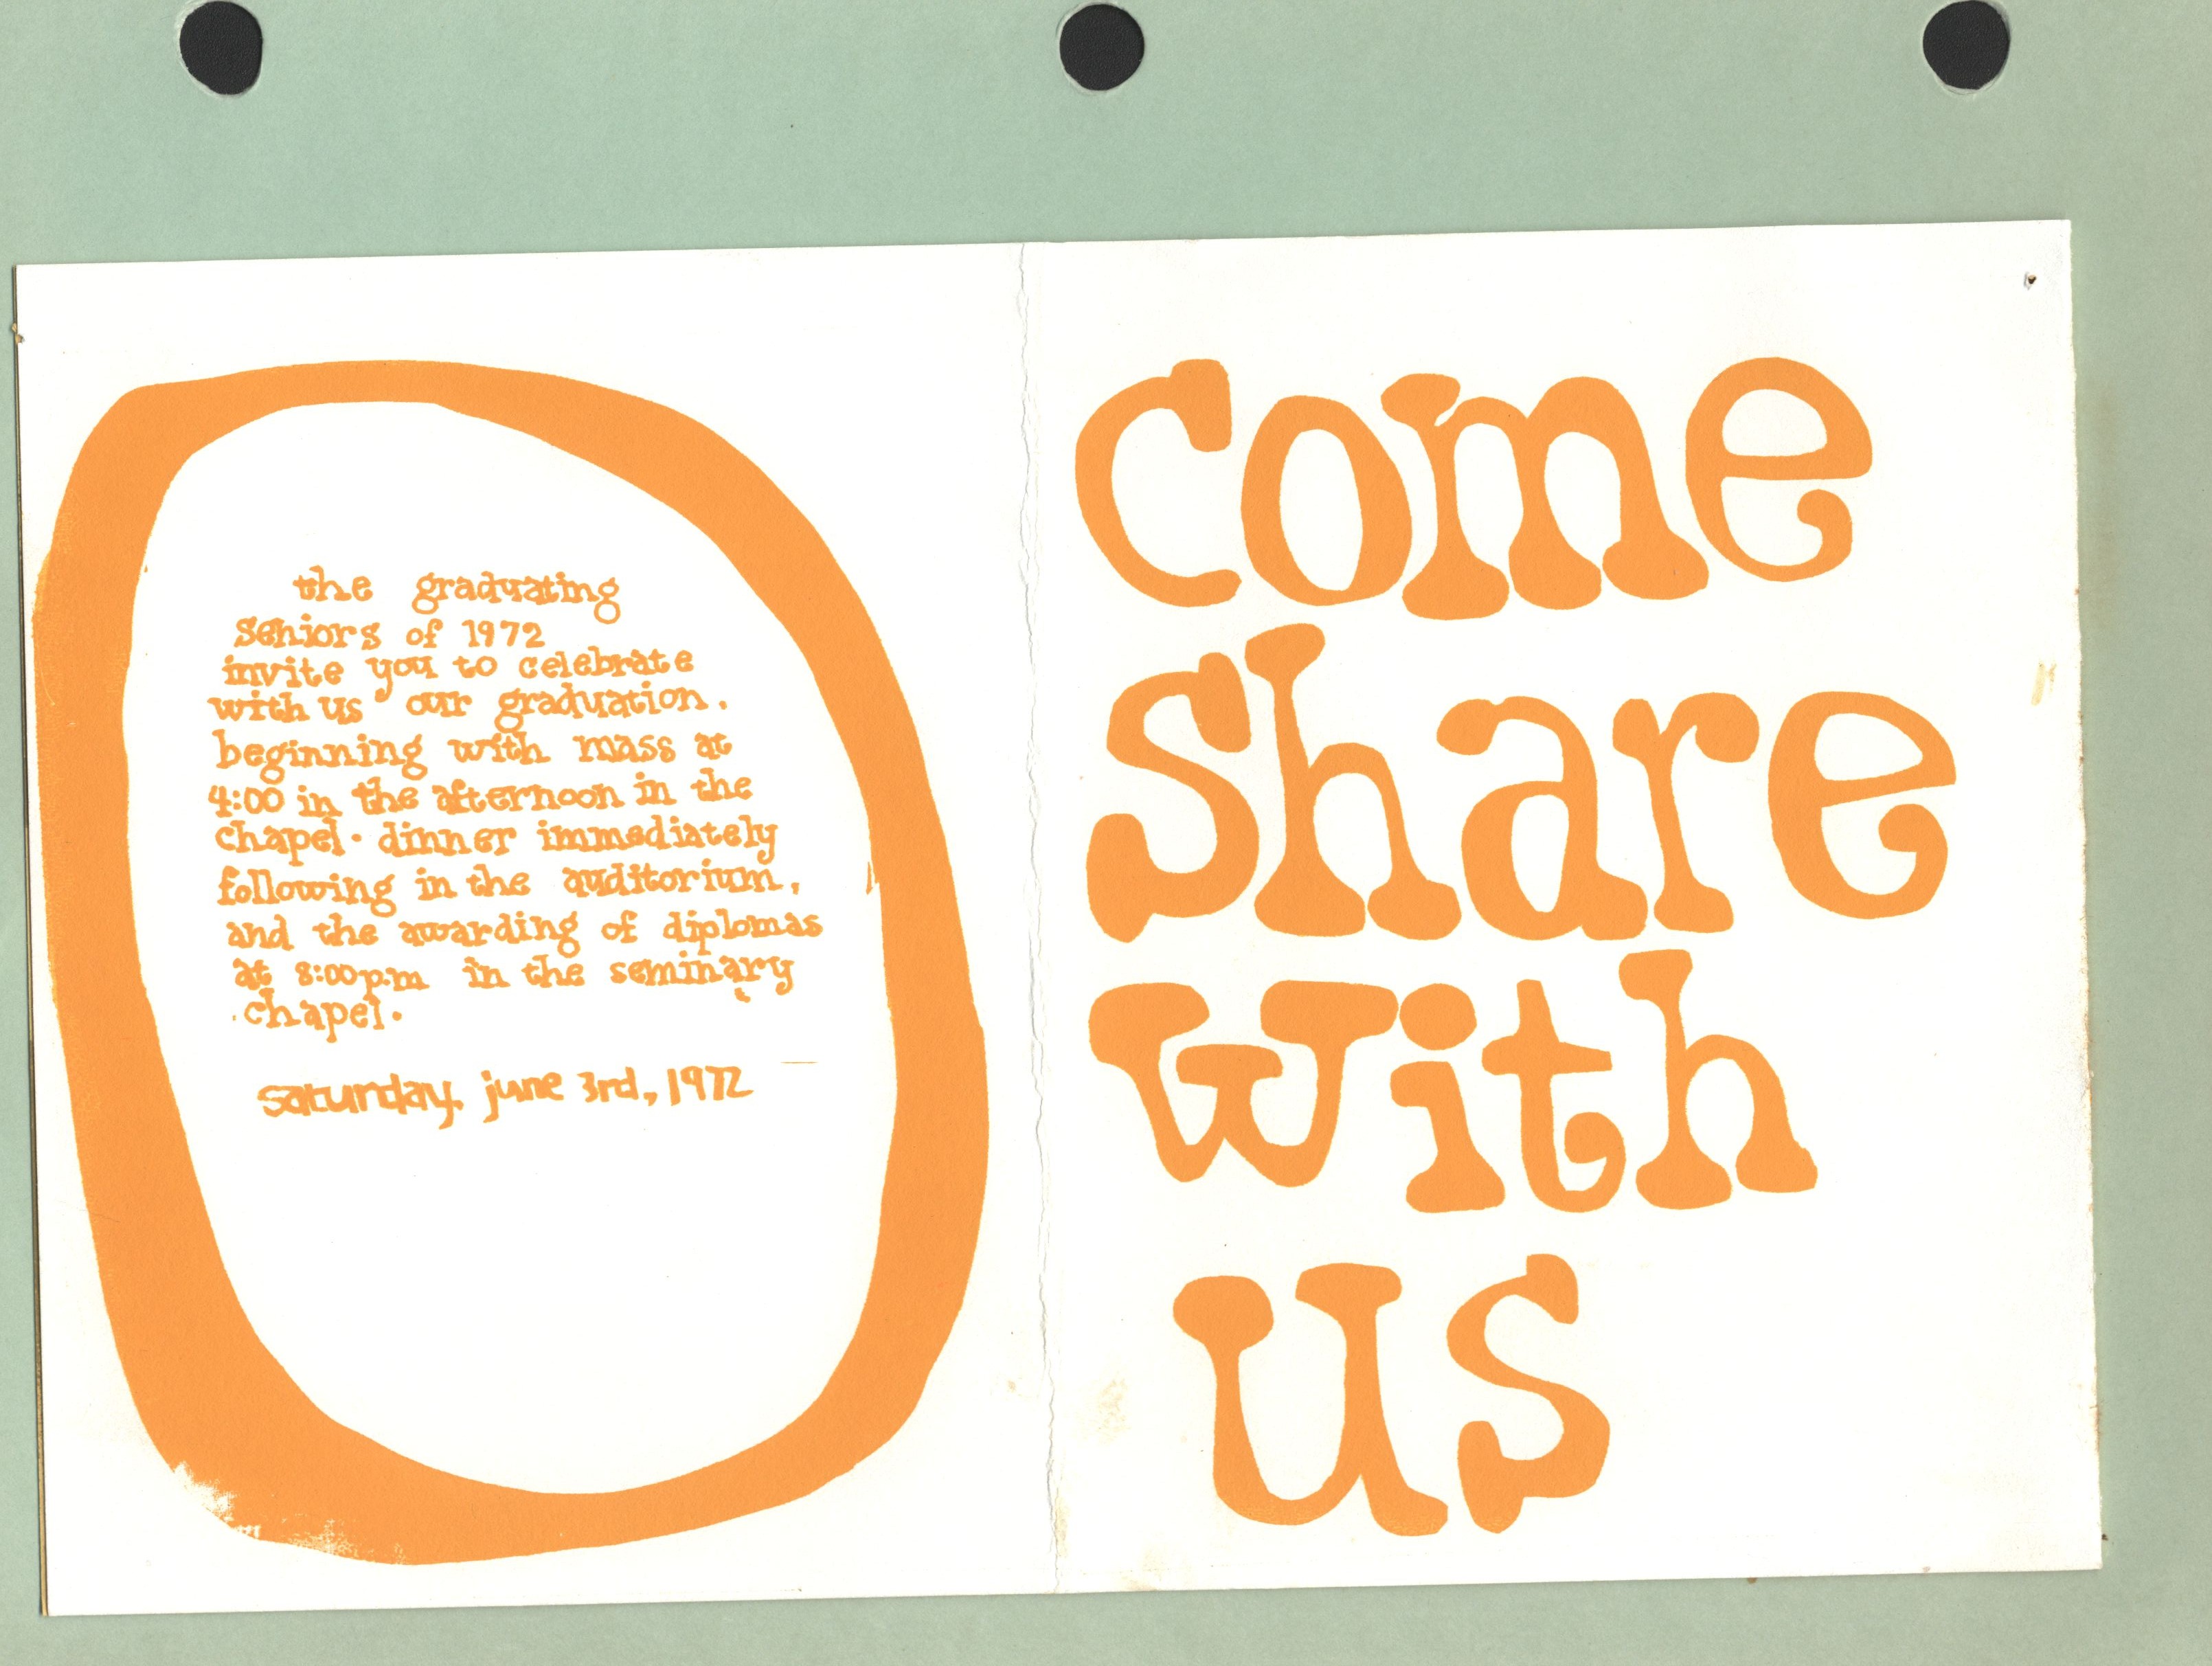 the graduating
Seniors of 1972
invite you to celebrate
with us our graduation.
beginning with mass at
4:00 in the afternoon in the
chapel. dinner immediately
following in the auditorium,
and the awarding of diplomas
at 8:00p.m in the seminary
chapel.
saturday, june 3rd, 1972
Come
Share
With
us